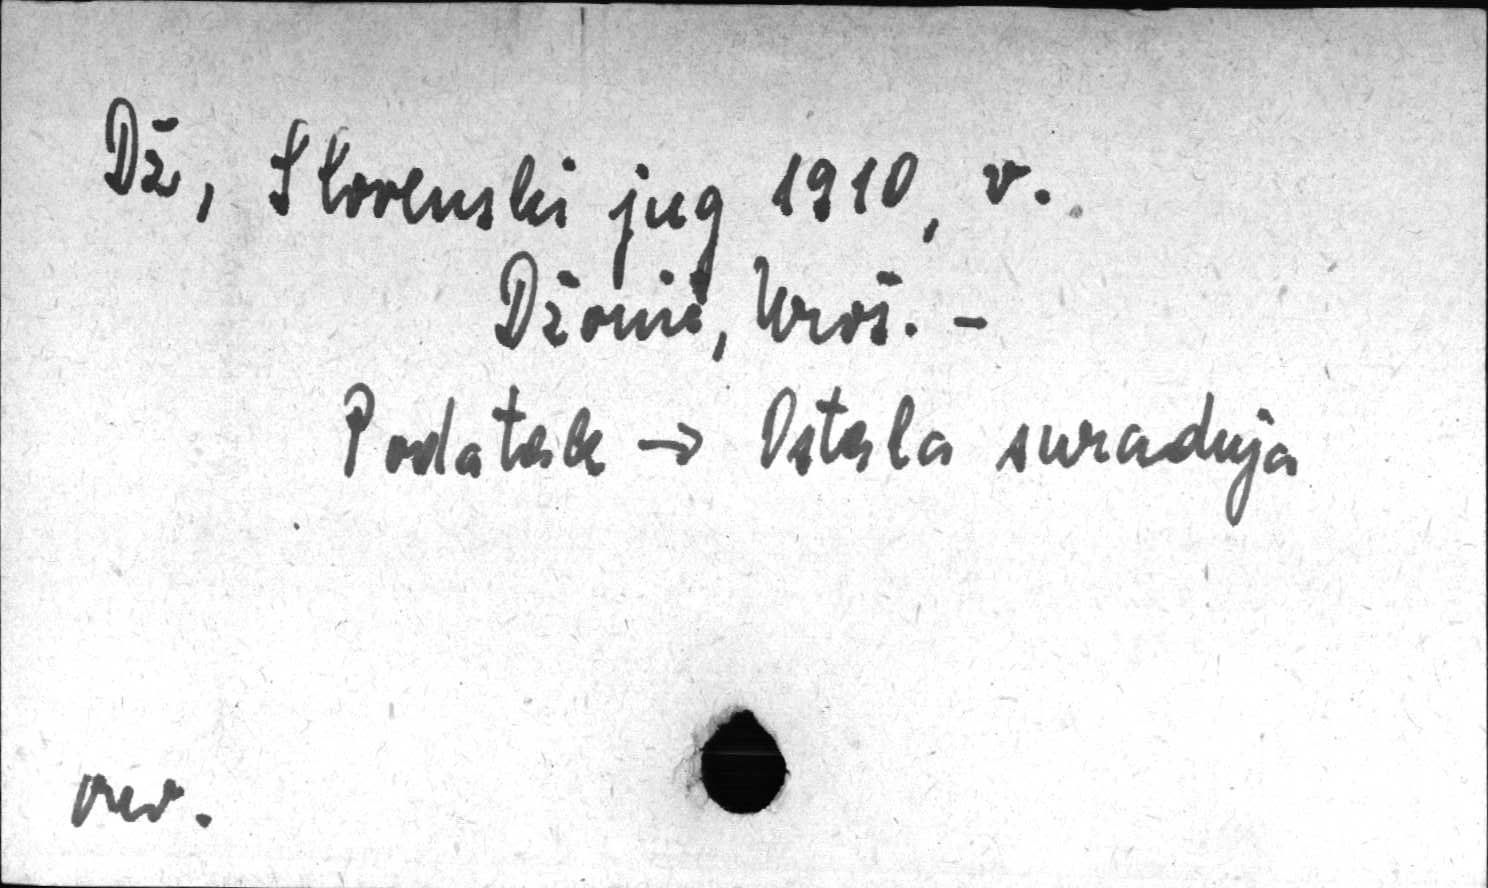 Dž, Slovenski jug 1910, v.
Džonić, Uroš. -
Podatak → Ostala suradnja